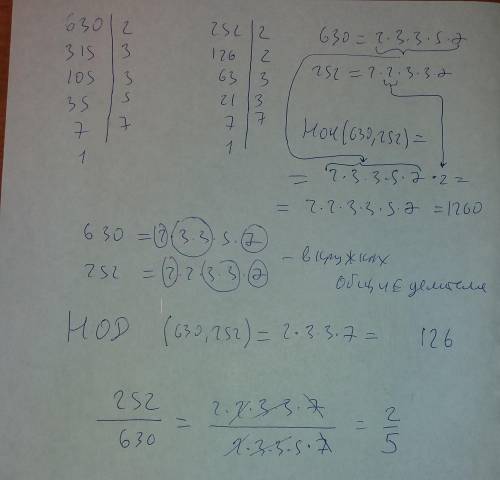 630 | 2
315 | 3
105 | 3
35 | 5
7 | 7
1
252 | 2
126 | 2
63 | 3
21 | 3
7 | 7
1
630 = 2·3·3·5·7
252 = 2·2·3·3·7
НОК(630,252)=
= 2·3·3·5·7·2=
= 2·2·3·3·5·7 =1260
630 = 2·3·3·5·7
252 = 2·2·3·3·7
- в кружках
общие делители
НОД (630,252)= 2·3·3·7 = 126
252/630 = 2·2·3·3·7/2·3·3·5·7 = 2/5